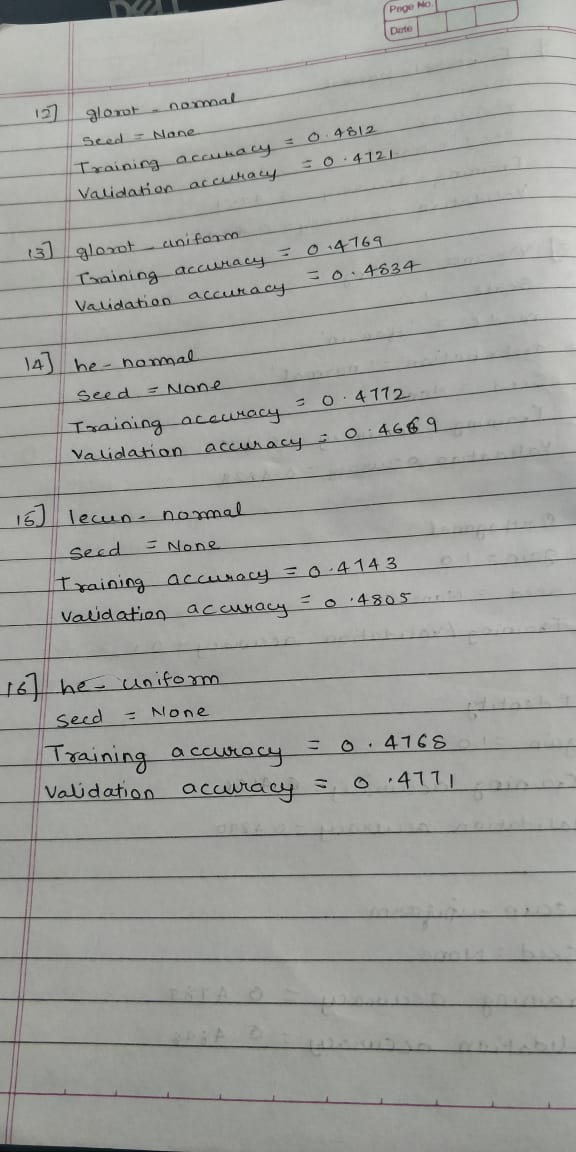 DELL
Page No.
Date
12] glorot - normal
Seed = None
Training accuracy = 0.4812
Validation accuracy = 0.4721
13] glorot - uniform
Training accuracy = 0.4769
Validation accuracy = 0.4834
14] he - normal
Seed = None
Training accuracy = 0.4772
Validation accuracy = 0.4669
15] lecun - normal
Seed = None
Training accuracy = 0.4743
Validation accuracy = 0.4805
16] he - uniform
Seed = None
Training accuracy = 0.4768
Validation accuracy = 0.4771